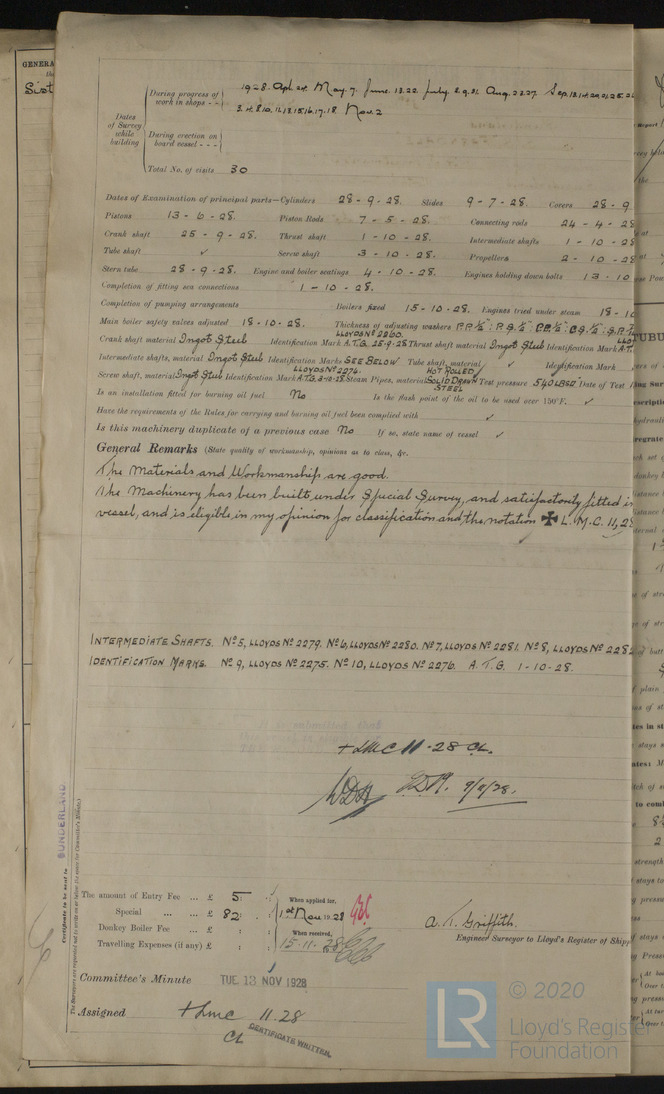 GENERA
Sist
During progress of work in shops - - 1928. Apl. 24. May. 7. June. 13.22. July. 2.9.31. Aug. 23.27. Sep. 12.14.20.21.25.
3.4.8.10.12.13.15.16.17.18. Nov. 2
Dates of Survey while building
During erection on board vessel - - -
Total No. of visits 30
Dates of Examination of principal parts—Cylinders 28-9-28. Slides 9-7-28. Covers 28-9
Pistons 13-6-28. Piston Rods 7-5-28. Connecting rods 24-4-28
Crank shaft 25-9-28. Thrust shaft 1-10-28. Intermediate shafts 1-10-28
Tube shaft ✓ Screw shaft 3-10-28. Propellers 2-10-28
Stern tube 28-9-28. Engine and boiler seatings 4-10-28. Engines holding down bolts 13-10
Completion of fitting sea connections 1-10-28.
Completion of pumping arrangements Boilers fixed 15-10-28. Engines tried under steam 18-10
Main boiler safety valves adjusted 18-10-28. Thickness of adjusting washers
Crank shaft material Ingot Steel Identification Mark LLOYDS No 2260. A.T.G. 25-9-28 Thrust shaft material Ingot Steel Identification Mark A.T.
Intermediate shafts, material Ingot Steel Identification Marks SEE BELOW Tube shaft, material ✓ Identification Mark
Screw shaft, material Ingot Steel Identification Mark LLOYDS No 2274. A.T.G. 3-10-28 Steam Pipes, material HOT ROLLED SOLID DRAWN STEEL Test pressure 540 LBS□" Date of Test
Is an installation fitted for burning oil fuel No Is the flash point of the oil to be used over 150°F. ✓
Have the requirements of the Rules for carrying and burning oil fuel been complied with ✓
Is this machinery duplicate of a previous case No If so, state name of vessel ✓
General Remarks (State quality of workmanship, opinions as to class, &c.
The Materials and Workmanship are good.
The Machinery has been built under Special Survey, and satisfactorily fitted in
vessel, and is eligible, in my opinion for classification and the notation ✠ L.M.C. 11,28
INTERMEDIATE SHAFTS. No 5, LLOYDS No 2279. No 6, LLOYDS No 2280. No 7, LLOYDS No 2281. No 8, LLOYDS No 2282
IDENTIFICATION MARKS. No 9, LLOYDS No 2275. No 10, LLOYDS No 2276. A.T.G. 1-10-28.
+ LMC 11-28 CL.
9/11/28.
SUNDERLAND
Certificate to be sent to
The Surveyors are requested not to write on or below the space for Committee's Minute.
The amount of Entry Fee ... £ 5 : :
Special ... ... £ 82 : :
Donkey Boiler Fee ... £ : :
Travelling Expenses (if any) £ : :
When applied for,
1st Nov 1928
When received,
15-11-28
A. T. Griffith.
Engineer Surveyor to Lloyd's Register of Shipp
Committee's Minute TUE. 13 NOV 1928
Assigned + Lmc 11.28
CL CERTIFICATE WRITTEN.
LR © 2020
Lloyd's Register
Foundation